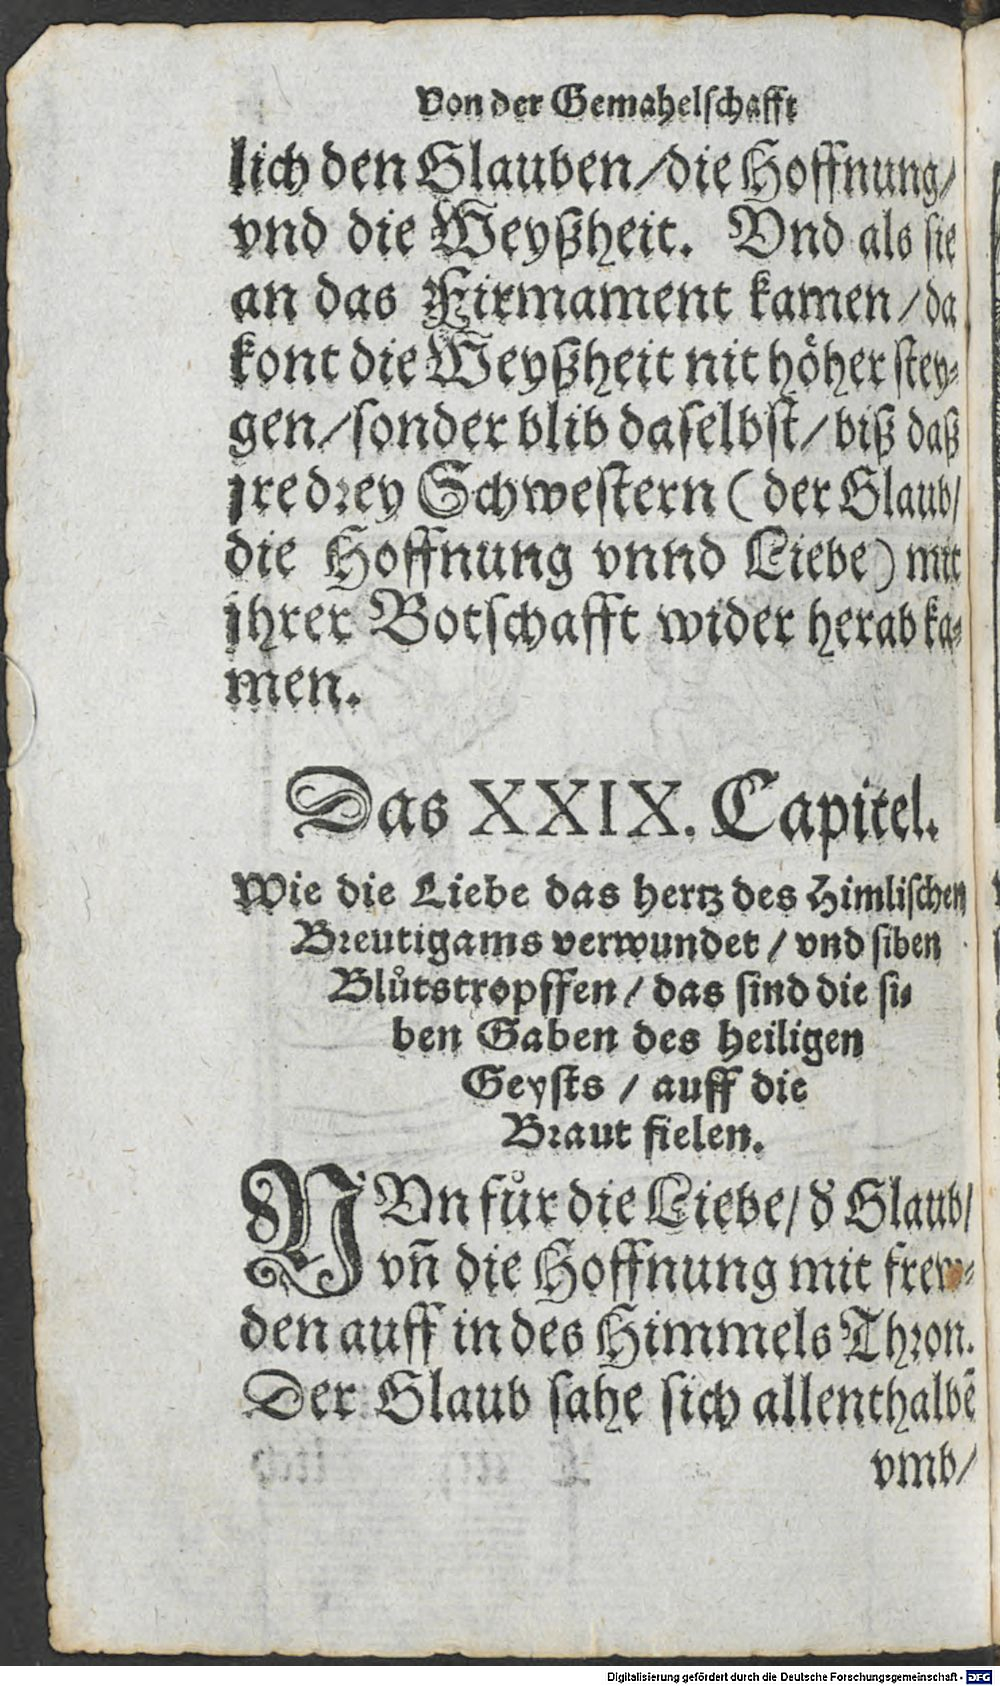 Von der Gemahelschafft
lich den Glauben/die Hoffnung/
vnd die Weyßheit. Vnd als sie
an das Firmament kamen/da
kont die Weyßheit nit höher stey-
gen/sonder blib daselbst/biß daß
jre drey Schwestern (der Glaub/
die Hoffnung vnnd Liebe) mit
jhrer Botschafft wider herab ka-
men.
Das XXIX. Capitel.
Wie die Liebe das hertz des Himlischen
Breutigams verwundet/vnd siben
Blůtstropffen/das sind die si-
ben Gaben des heiligen
Geysts/auff die
Braut fielen.
NVn fůr die Liebe/ď Glaub/
vñ die Hoffnung mit frew-
den auff in des Himmels Thron.
Der Glaub sahe sich allenthalbẽ
vmb/
Digitalisierung gefördert durch die Deutsche Forschungsgemeinschaft - DFG